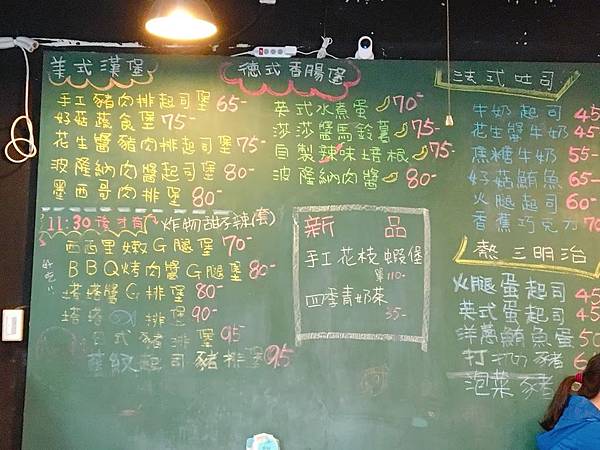 美式漢堡
手工豬肉排起司堡 65-
好菇蔬食堡 75-
花生醬豬肉排起司堡 75-
波隆納肉醬起司堡 80-
墨西哥肉排堡 80-
德式香腸堡
英式水煮蛋 70-
莎莎醬馬鈴薯 75-
自製辣味培根 75-
波隆納肉醬 80-
法式吐司
牛奶起司 45
花生醬牛奶 45
焦糖牛奶 55-
好菇鮪魚 65
火腿起司 60
香蕉巧克力 70
11:30後才有 炸物甜不辣(套)
西西里嫩G腿堡 70-
BBQ烤肉醬G腿堡 80-
塔塔醬G排堡 80-
塔塔 排堡 90-
日式豬排堡 95
起司豬排堡 95
新品
手工花枝蝦堡
單110-
四季青奶菜
35-
熱三明治
火腿蛋起司 45
英式蛋起司 45
洋蔥鮪魚蛋 50
打拋豬 6
泡菜豬